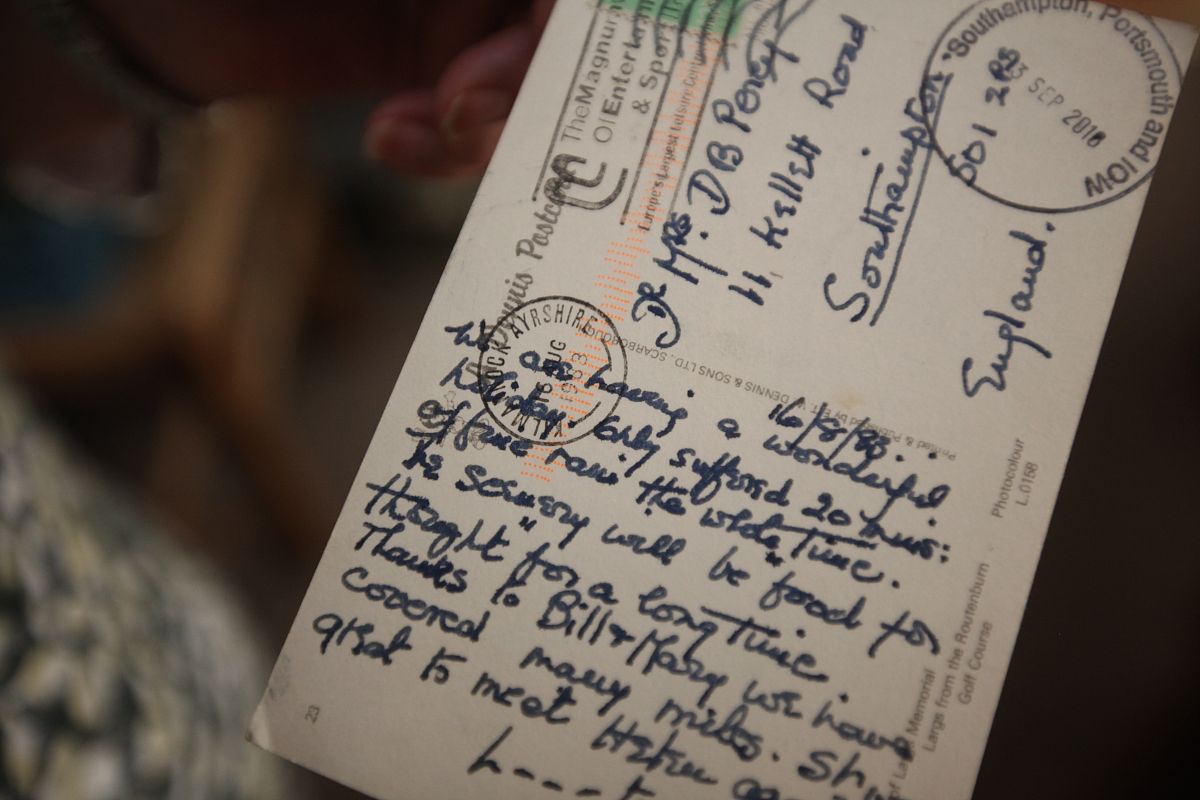 The Magnum
Of Entertainm
& Sport
Europe's Largest Leisure Cent
Dennis Postcard
Southampton, Portsmouth and IOW
3 SEP 2018
KILMARNOCK AYRSHIRE
16 AUG
1983
Dr Mrs. DB Percy
11 Kellett Road
Southampton
SO1 2RS
England.
16/8/83.
We are having a wonderful
holiday. Only suffered 20 mins:
of fine rain the whole Time.
The scenery will be "food for
thought" for a long Time.
Thanks to Bill & Mary we have
covered many miles.
great to meet Helen
Printed & Published by E. T. W. DENNIS & SONS LTD. SCARBOROUGH
Photocolour
L.0158
Memorial
Largs from the Routenburn
Golf Course
23